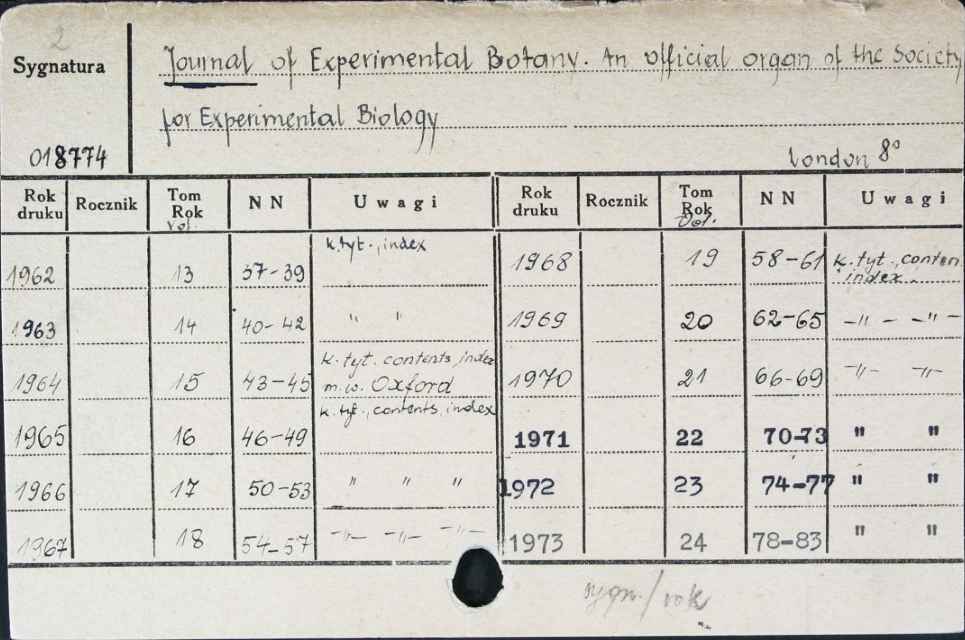 2
Sygnatura
Journal of Experimental Botany. An official organ of the Society
for Experimental Biology
018774
London 8°
Rok druku Rocznik Tom Rok Vol. NN Uwagi Rok druku Rocznik Tom Rok Vol. NN Uwagi
1962 13 37-39 k. tyt., index
1963 14 40-42 " "
1964 15 43-45 k. tyt. contents, index m.w. Oxford
1965 16 46-49 k. tyt., contents, index
1966 17 50-53 " " "
1967 18 54-57 -"- -"- -"-
1968 19 58-61 k. tyt., conten. index
1969 20 62-65 -"- -"-
1970 21 66-69 -"- -"-
1971 22 70-73 " "
1972 23 74-77 " "
1973 24 78-83 " "
sygn./rok